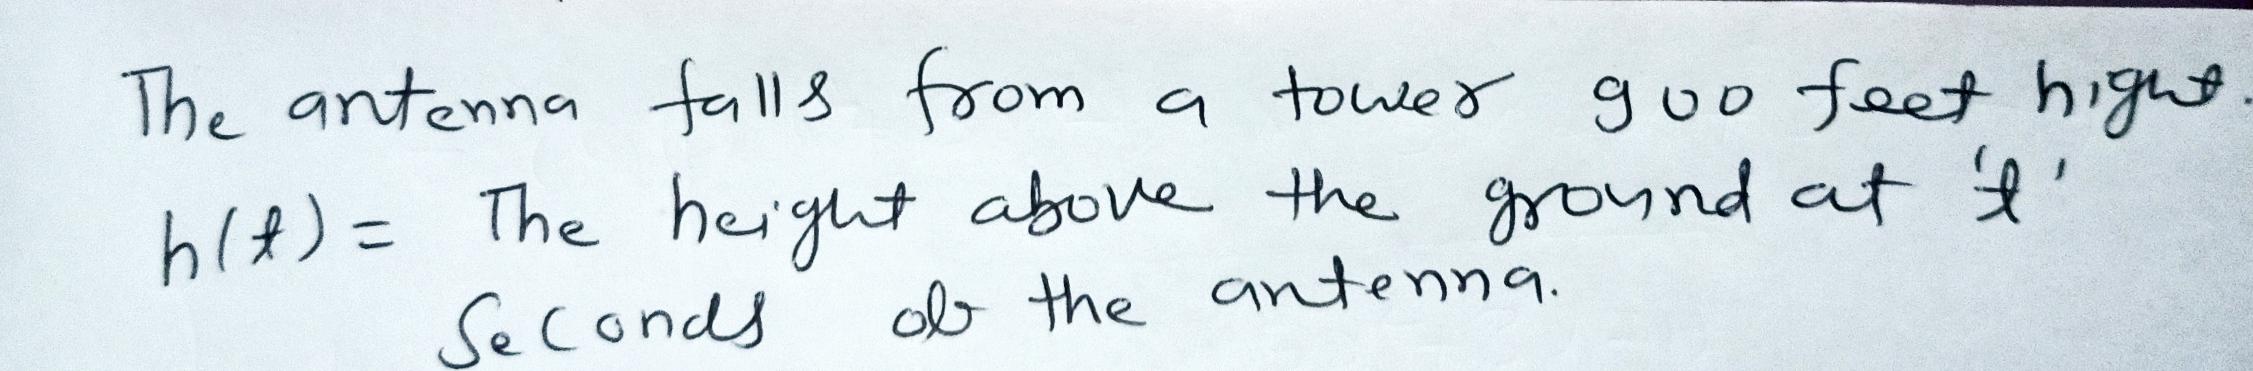 The antenna falls from a tower 900 feet hight.
h(t) = The height above the ground at 't'
Seconds of the antenna.